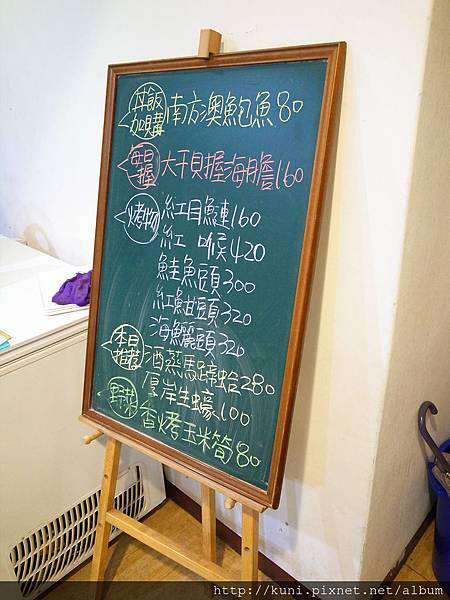 丼飯
加購 南方澳鮑魚80
每日
一握 大干貝握海膽160
烤物 紅目鰱160
紅喉420
鮭魚頭300
紅魽頭320
海鱺頭320
本日
推薦 酒蒸馬蹄蛤280
厚岸生蠔100
野菜 香烤玉米筍80
http://kuni.pixnet.net/album